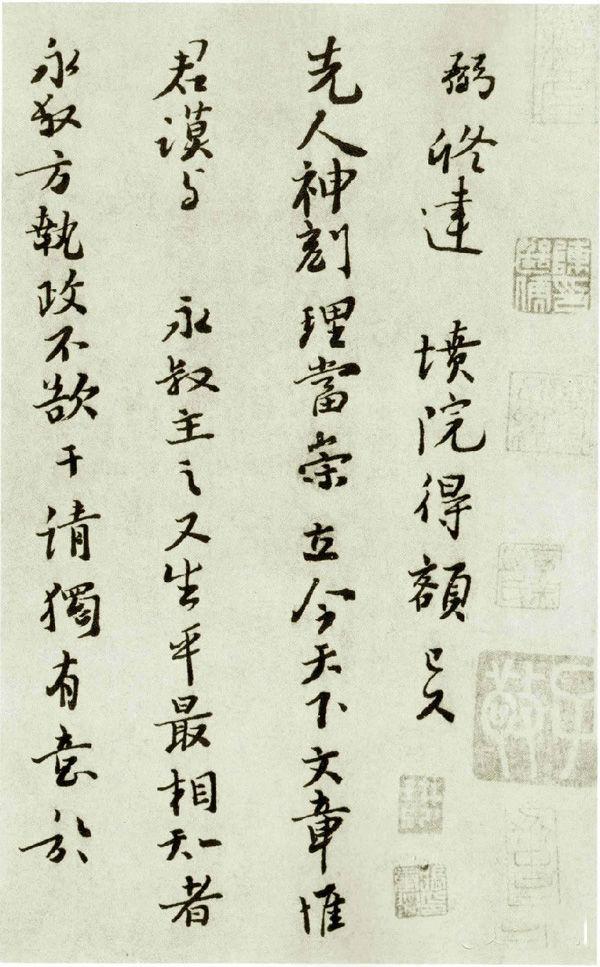 弼修建 墳院得額已久
先人神刻理當崇立今天下文章惟
君謨與 永叔主之又生平最相知者
永叔方執政不欲干請獨有意於